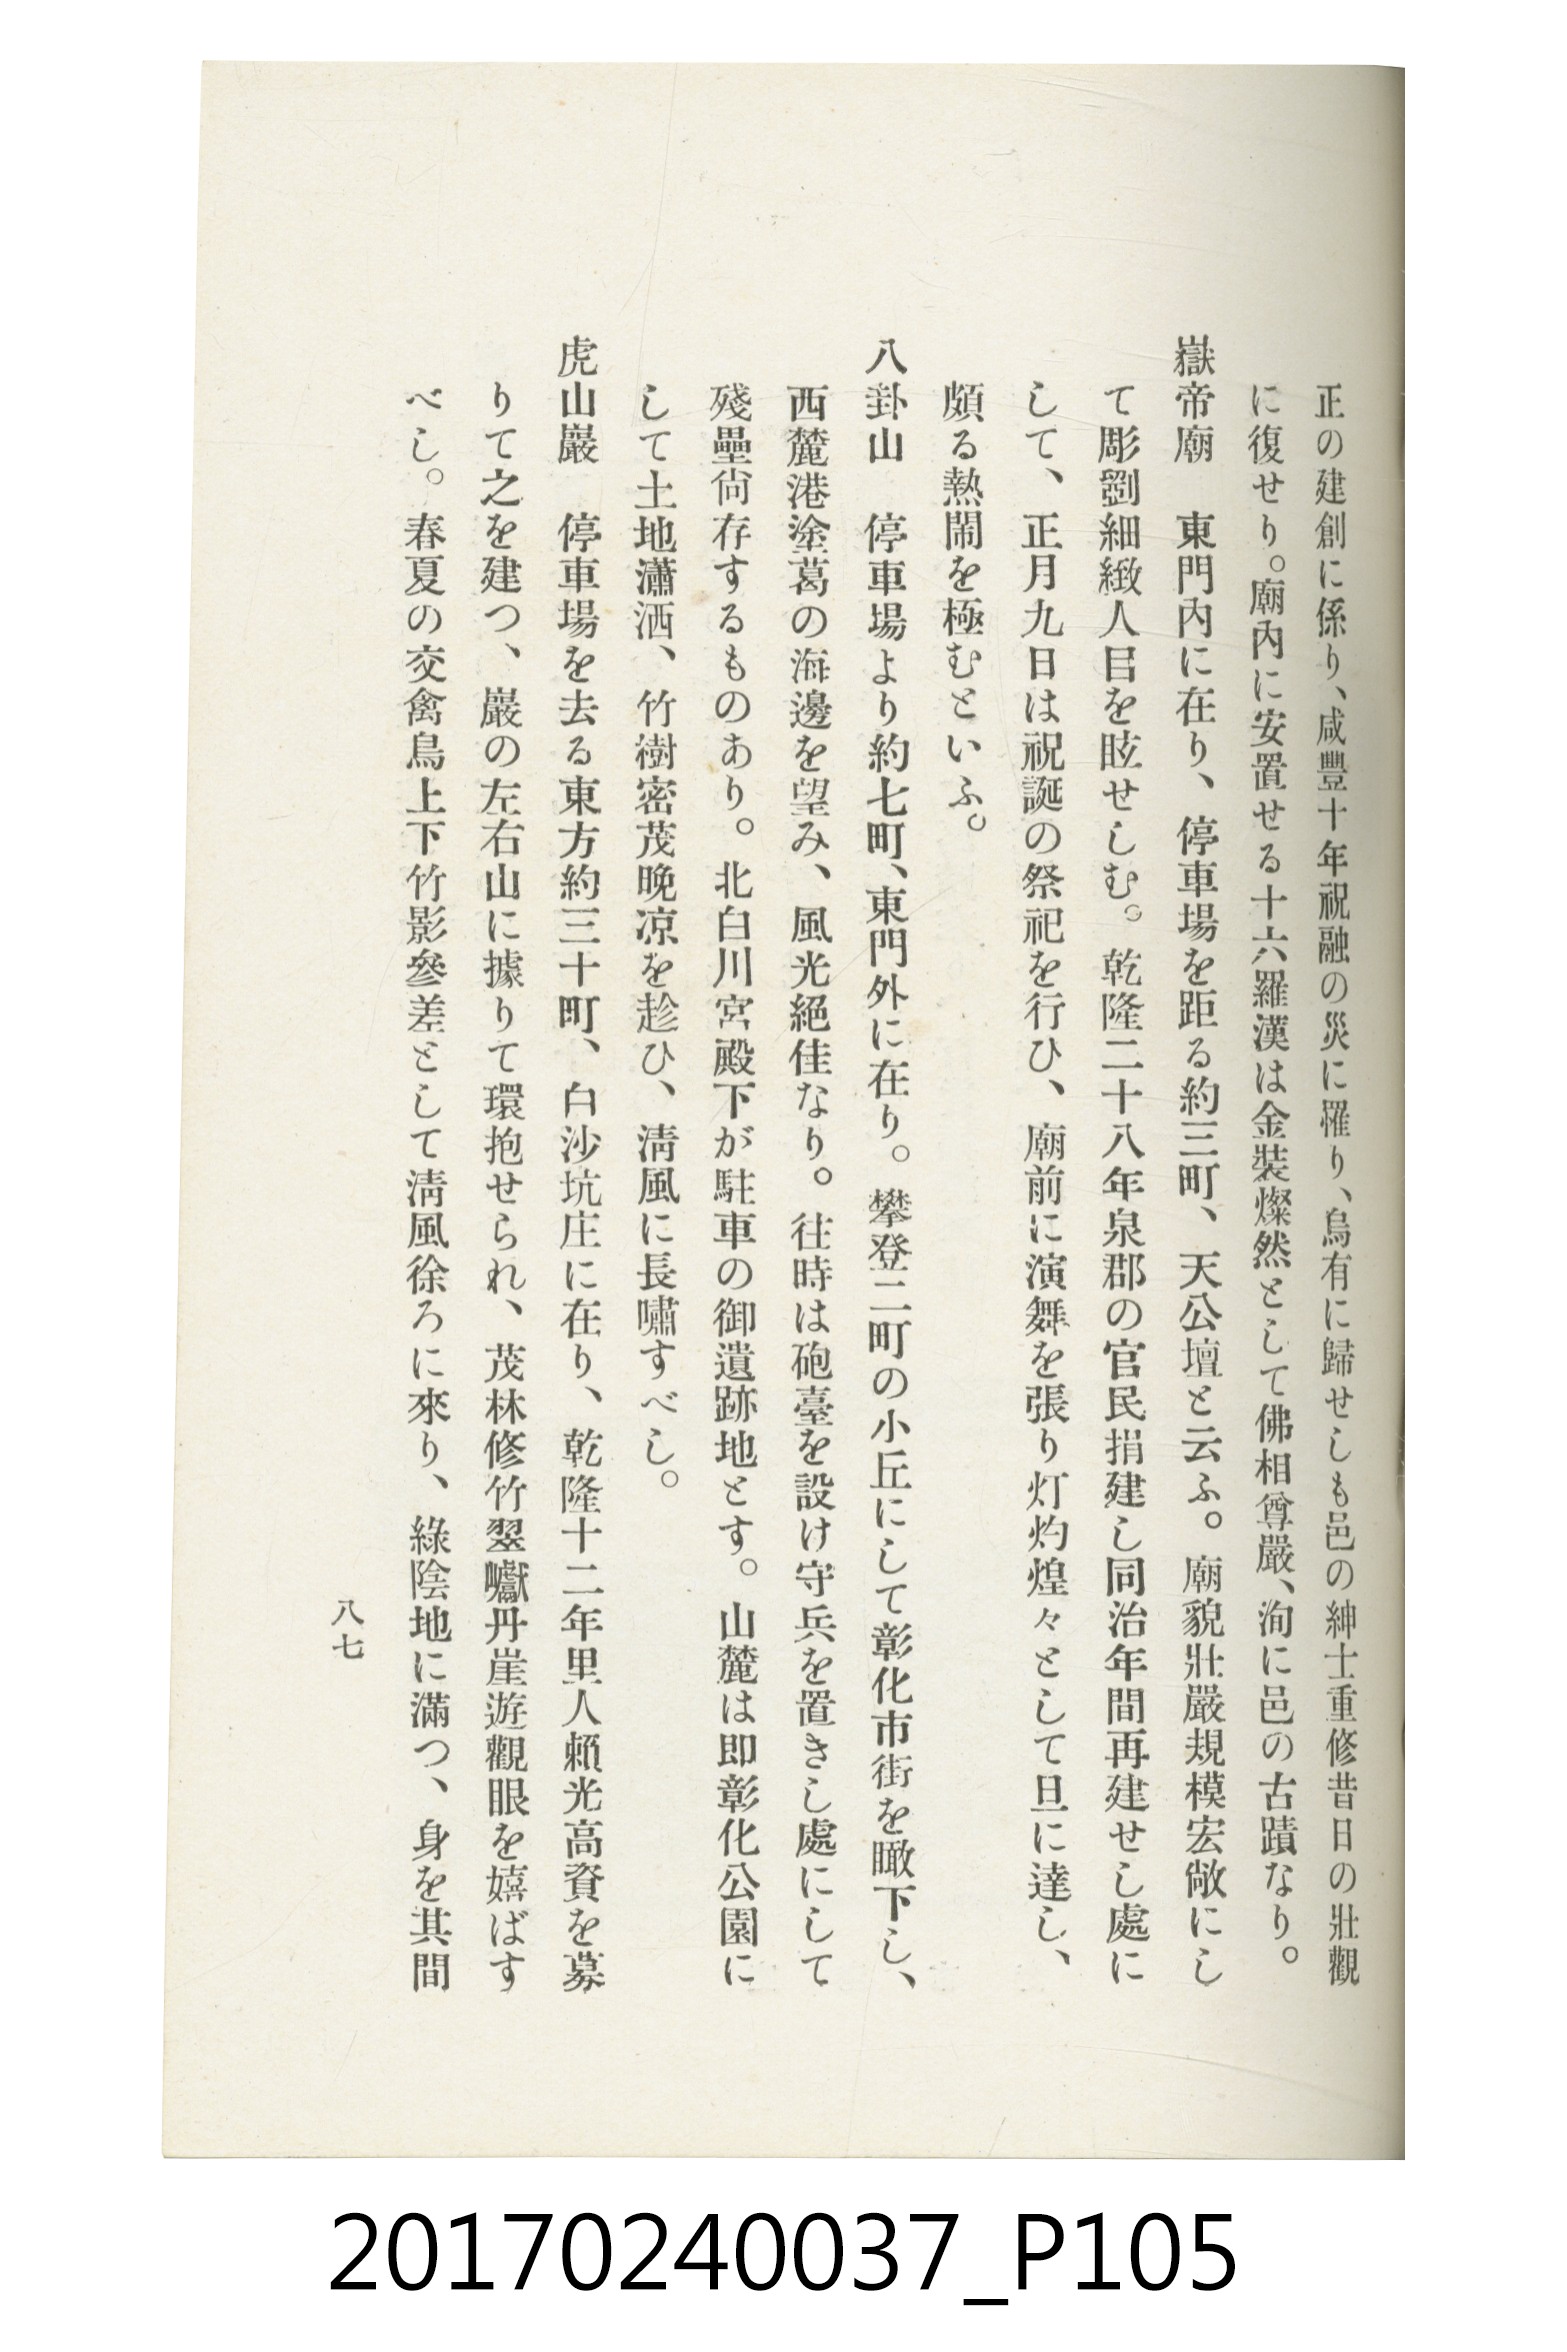 正の建創に係り、咸豐十年祝融の災に罹り、烏有に歸せしも邑の紳士重修昔日の壯觀
に復せり。廟內に安置せる十六羅漢は金裝燦然として佛相尊嚴、洵に邑の古蹟なり。
嶽帝廟　東門內に在り、停車場を距る約三町、天公壇と云ふ。廟貌壯嚴規模宏敞にし
て彫劉細緻人目を眩せしむ。乾隆二十八年泉郡の官民捐建し同治年間再建せし處に
して、正月九日は祝誕の祭祀を行ひ、廟前に演舞を張り灯灼煌々として旦に達し、
頗る熱鬧を極むといふ。
八卦山　停車場より約七町、東門外に在り。攀登二町の小丘にして彰化市街を瞰下し、
西麓港塗葛の海邊を望み、風光絕佳なり。往時は砲臺を設け守兵を置きし處にして
殘壘尙存するものあり。北白川宮殿下が駐車の御遺跡地とす。山麓は卽彰化公園に
して土地瀟洒、竹樹密茂晚凉を趁ひ、淸風に長嘯すべし。
虎山巖　停車場を去る東方約三十町、白沙坑庄に在り、乾隆十二年里人賴光高資を募
りて之を建つ、巖の左右山に據りて環抱せられ、茂林修竹翠巘丹崖遊觀眼を嬉ばす
べし。春夏の交禽鳥上下竹影參差として淸風徐ろに來り、綠陰地に滿つ、身を其間
八七
20170240037_P105